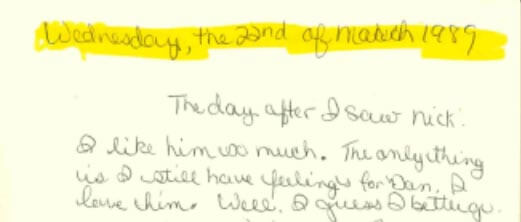 Wednesday, the 22nd of March 1989
The day after I saw nick.
I like him so much. The only thing
is I still have feelings for Dan. I
love him. Well, I guess I better go.